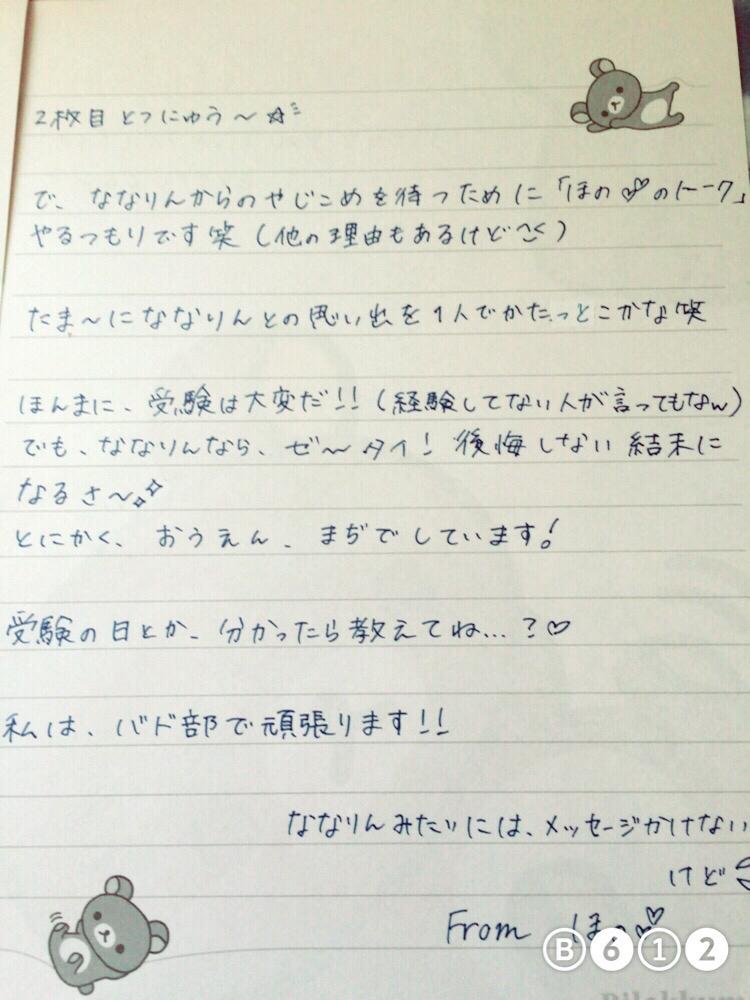 2枚目とつにゅう〜☆
で、ななりんからのやじこめを待つために「ほの♡のトーク」
やるつもりです笑（他の理由もあるけど
たま〜にななりんとの思い出を1人でかたっとこかな笑
ほんまに、受験は大変だ!!（経験してない人が言ってもなw）
でも、ななりんなら、ゼ〜タイ！後悔しない結末に
なるさ〜
とにかく、おうえん、まぢでしています！
受験の日とか、分かったら教えてね…？♡
私は、バド部で頑張ります!!
ななりんみたいには、メッセージかけない
けど
From ほの♡
B612